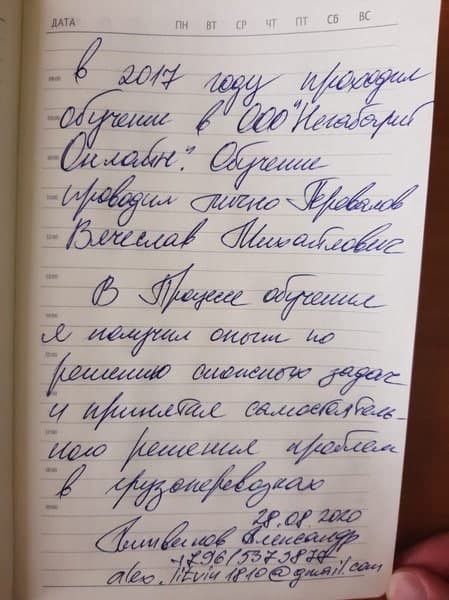 ДАТА ПН ВТ СР ЧТ ПТ СБ ВС
в 2017 году проходил
обучение в ООО "Негабарит
Онлайн". Обучение
проводил лично Перовалов
Вячеслав Михайлович
В Процессе обучения
я получил опыт по
решению сложных задач
и принятия самостоятель-
ного решения проблем
в грузоперевозках
28.08.2020
Александр
+79615373877
alex.litvin1810@gmail.com